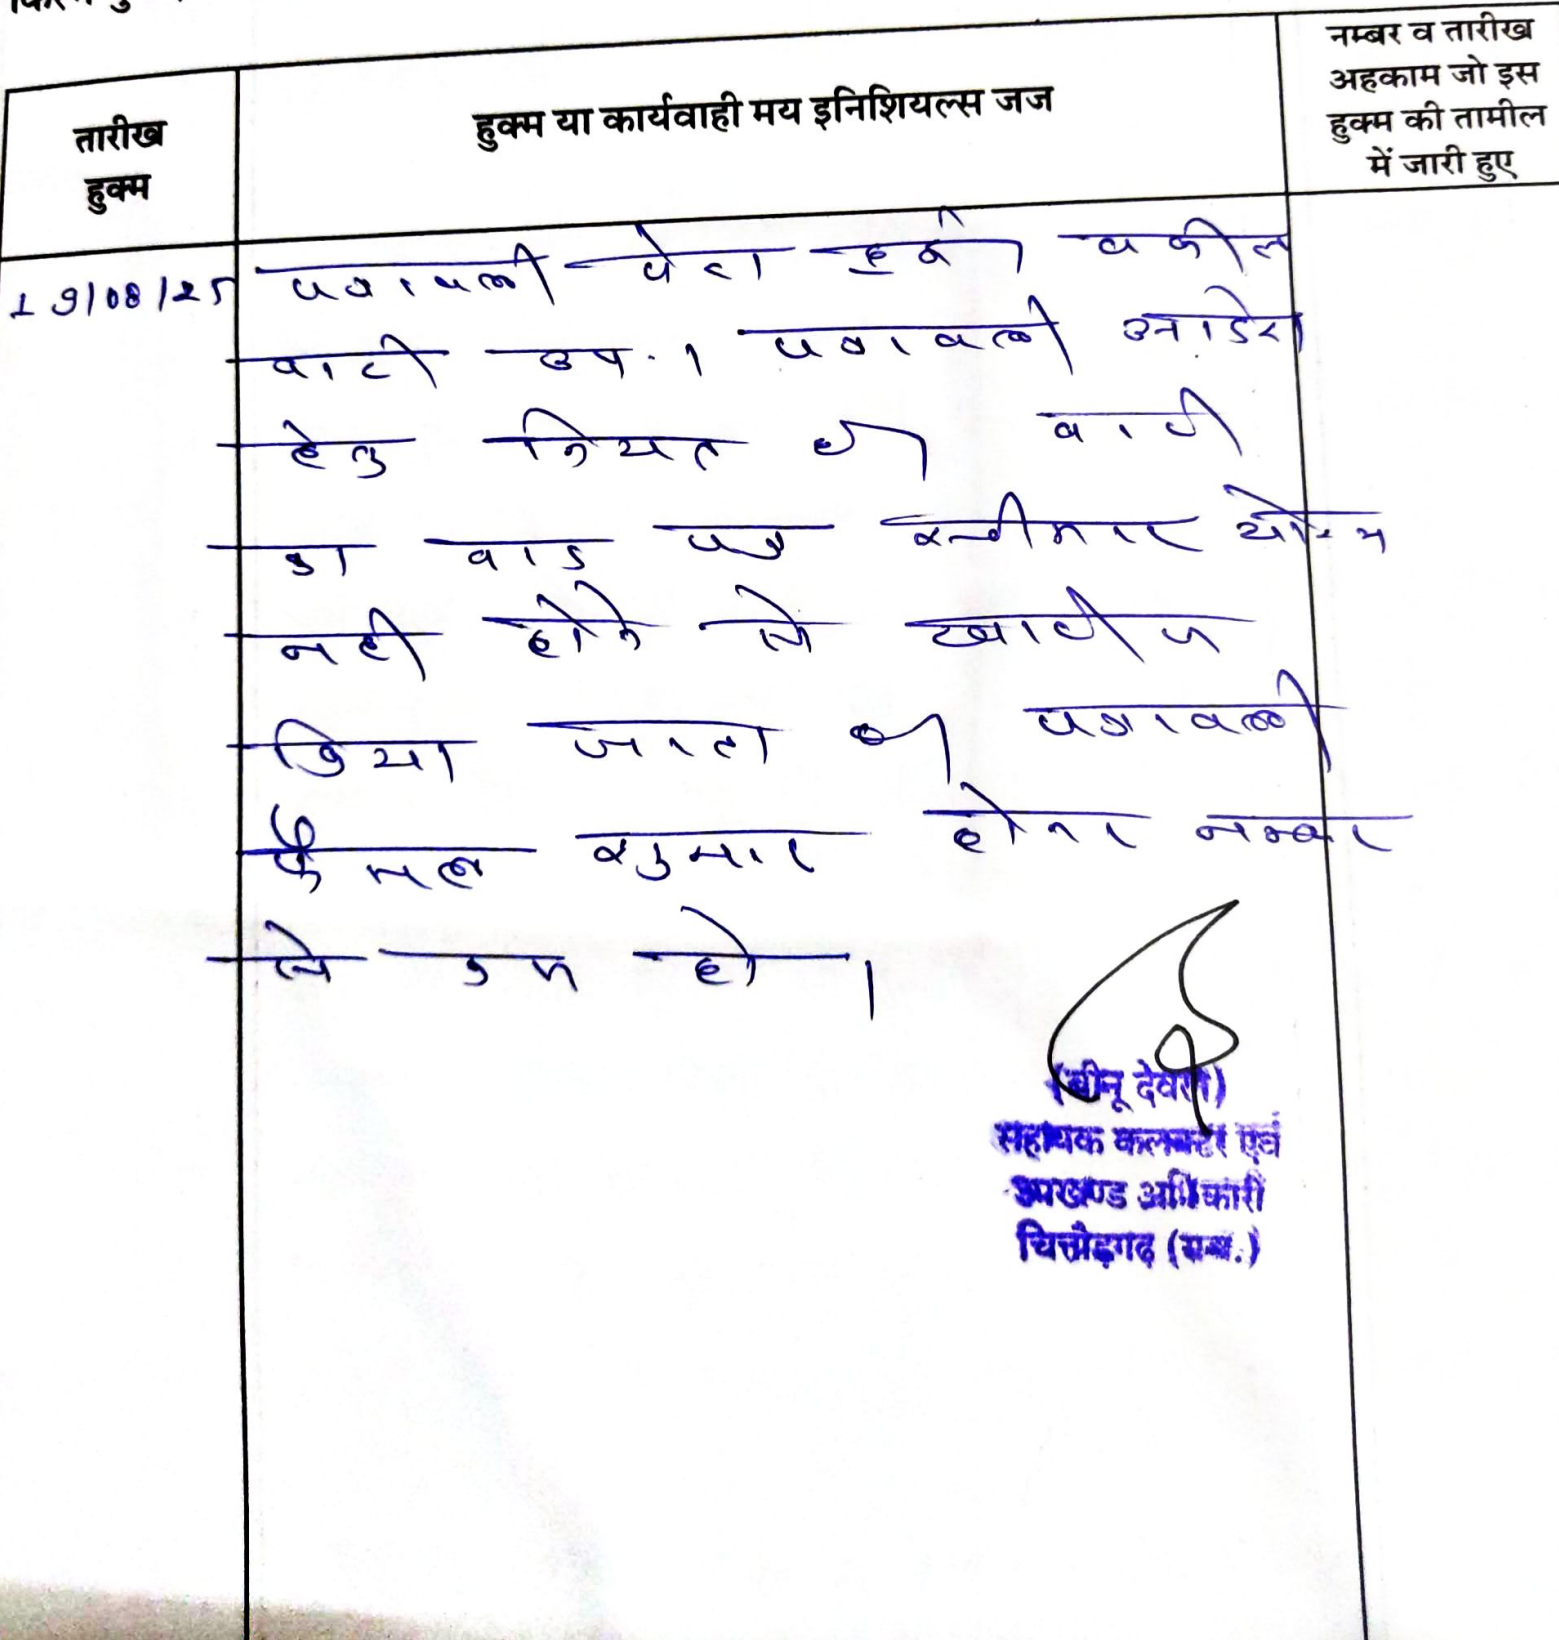 तारीख
हुक्म
हुक्म या कार्यवाही मय इनिशियल्स जज
नम्बर व तारीख
अहकाम जो इस
हुक्म की तामील
में जारी हुए
19/08/25
पत्रावली पेश हुई। वकील
वादी उप.। पत्रावली आदेश
हेतु नियत थी। वादी
का वाद पत्र स्वीकार योग्य
नही होने से खारीज
किया जाता है। पत्रावली
फैसल शुमार होकर नम्बर
से कम हो।
(बीनू देवल)
सहायक कलक्टर एवं
उपखण्ड अधिकारी
चित्तौड़गढ़ (राज.)